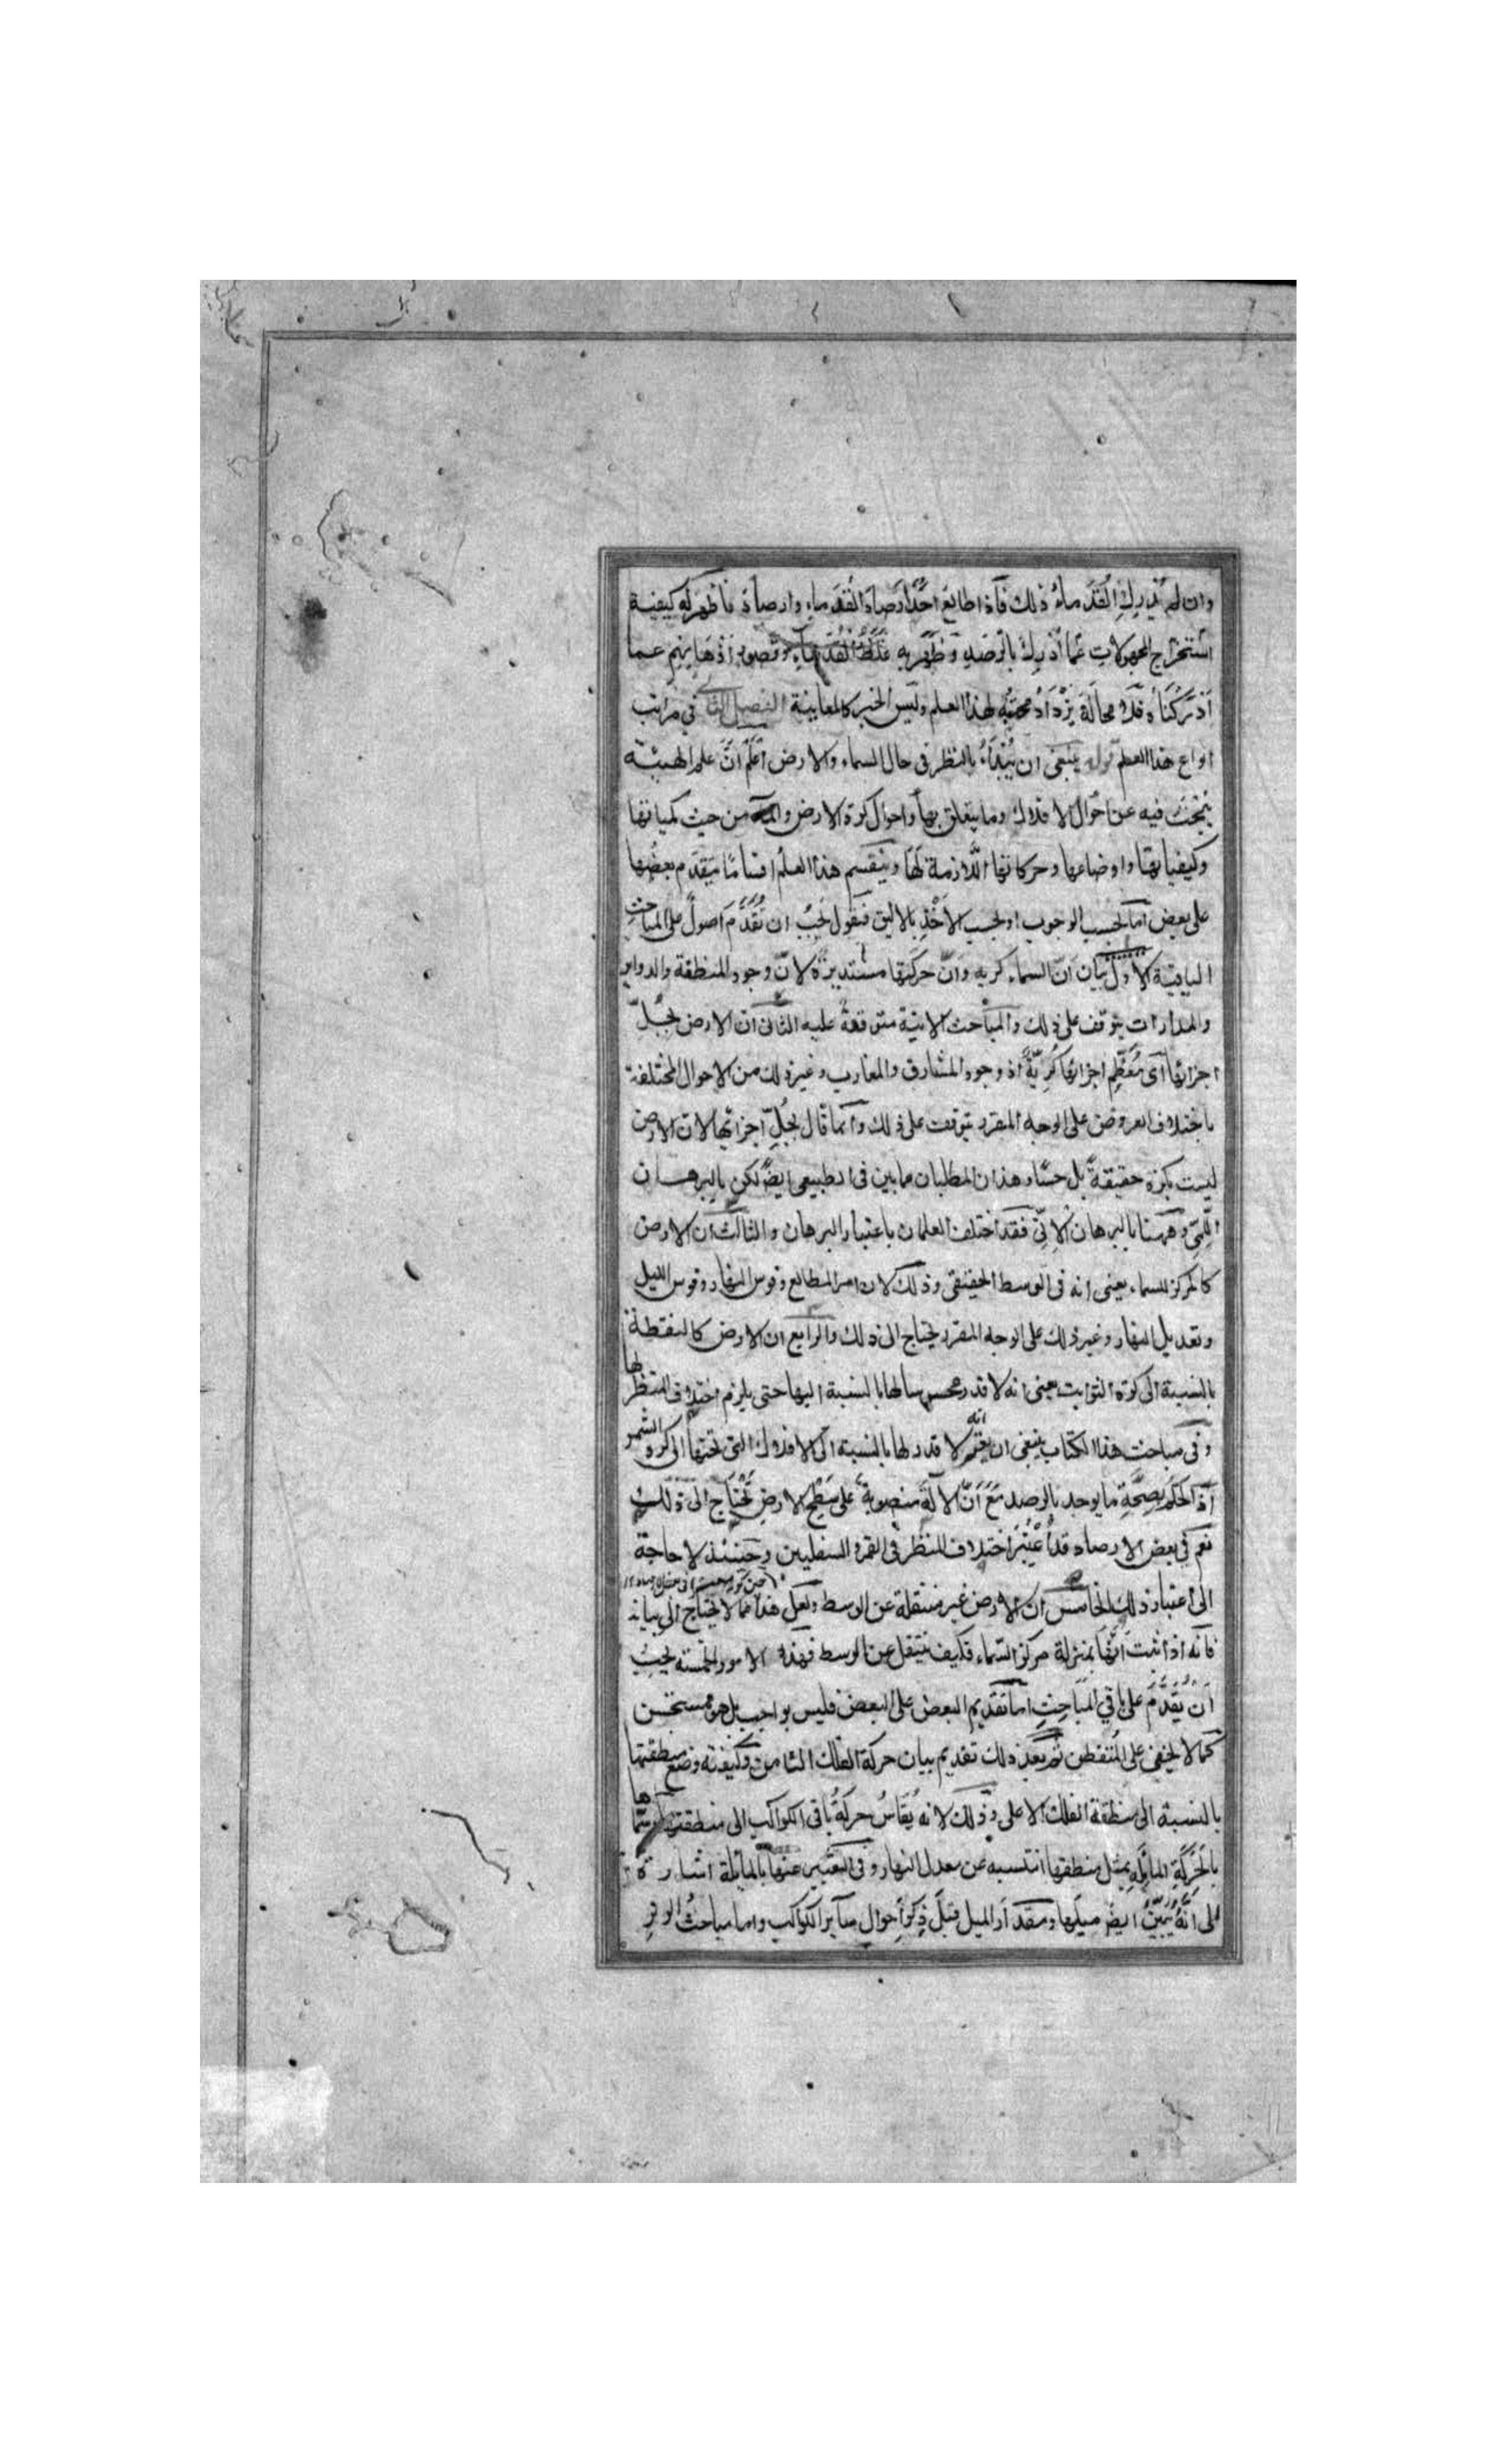 وان لم يُدرِكِ القُدَماءُ ذلك فاذا طالع احدٌ ارصادَ القُدَماءِ وارصادَهُ فاظهر له كيفية
استخراج المجهولات عما اُدرِكَ بالرَّصَدِ وظَهَرَ به غَلَطُ القُدَماءِ وقصور اذهانهم عما
اَدْرَكْناهُ فلا محالة يَزْدادُ محبَّتُهُ لهذا العلم وليس الخبر كالمعاينة الفصل الثانى فى مراتب
انواع هذا العلم قوله ينبغى ان يُبْدَأ بالنظر فى حال السماء والارض اعلم انّ علم الهيئة
يُبْحَثُ فيه عن احوال الافلاك وما يتعلق بها واحوال كرة الارض والماء من حيث كمياتها
وكيفياتها واوضاعها وحركاتها اللازمة لها وينقسم هذا العلم اقسامًا يتقدم بعضُها
على بعض اما بحسب الوجوب او بحسب الاَخْذِ بالاليق فنقول يجبُ ان تُقَدَّمَ اصولٌ على المباحثِ
الباقية الاوّل بيان انّ السماء كرية وانّ حركتها مستديرة لانّ وجود المنطقة والدواير
والمدارات يتوقف على ذلك والمباحث الاتية متوقفة عليه الثانى انّ الارض بجُلِّ
اجزائها اى مُعْظَمِ اجزائها كُرِيّةٌ اذ وجود المشارق والمغارب وغير ذلك من الاحوال المختلفة
باختلاف العروض على الوجه المقرر يتوقف على ذلك وانما قال بجُلِّ اجزائها لان الارض
ليست بكرة حقيقةً بل حسًّا وهذان المطلبان مما يبين فى الطبيعى ايضًا لكن بالبرهان
اللِمّى وههنا بالبرهان الاِنّى فقد اختلف العلمان باعتبار البرهان والثالث ان الارض
كالمركز للسماء يعنى انه فى الوسط الحقيقى وذلك لان امر المطالع وقوس النهار وقوس الليل
وتعديل النهار وغير ذلك على الوجه المقرر يحتاج الى ذلك والرابع ان الارض كالنقطة
بالنسبة الى كرة الثوابت يعنى انه لا قدر محسوسا لها بالنسبة اليها حتى يلزم اختلاف المنظر لها
وفى مباحث هذا الكتاب ينبغى ان يعلم انه لا قدر لها بالنسبة الى الافلاك التى تحتها الى كرة الشمس
اذ الحكم بصحّة ما يوجد بالرصد مَعَ اَنّ الآلةَ منصوبة على سَطْحِ الارضِ يحتاج الى ذلك
نعم فى بعض الارصاد قد اُعْتُبِرَ اختلاف المنظر فى القمر والسفليين وحينئذ لا حاجة
الى اعتبار ذلك الخامس ان الارض غير منتقلة عن الوسط ولعل هذا مما لا يحتاج الى بيانه
فانه اذا ثبت انّها بمنزلة مركز السّماء فكيف ينتقل عن الوسط فهذه الامور الخمسة يجبُ
اَنْ يُقَدَّمَ على باقى المَباحِثِ اما تقديم البعض على البعض فليس بواجب بل هو مستحسن
كما لا يخفى على المُتفطن ثم بعد ذلك تقديم بيان حركة الفلك الثامن وكيفيته وضع منطقتها
بالنسبة الى منطقة الفلك الاعلى وذلك لانه يُقاسُ حركةُ باقى الكواكب الى منطقتها وسماها
بالحَرَكَةِ المائِلَةِ بميل منطقتها المنتسبه عن معدل النهار وفى التعبير عنها بالمائلة اشارة
الى انّهُ يُبَيَّنُ ايضًا ميلُها ومقدار الميل قبل ذِكْرِ احوال سآير الكواكب واما مباحث الوترِ